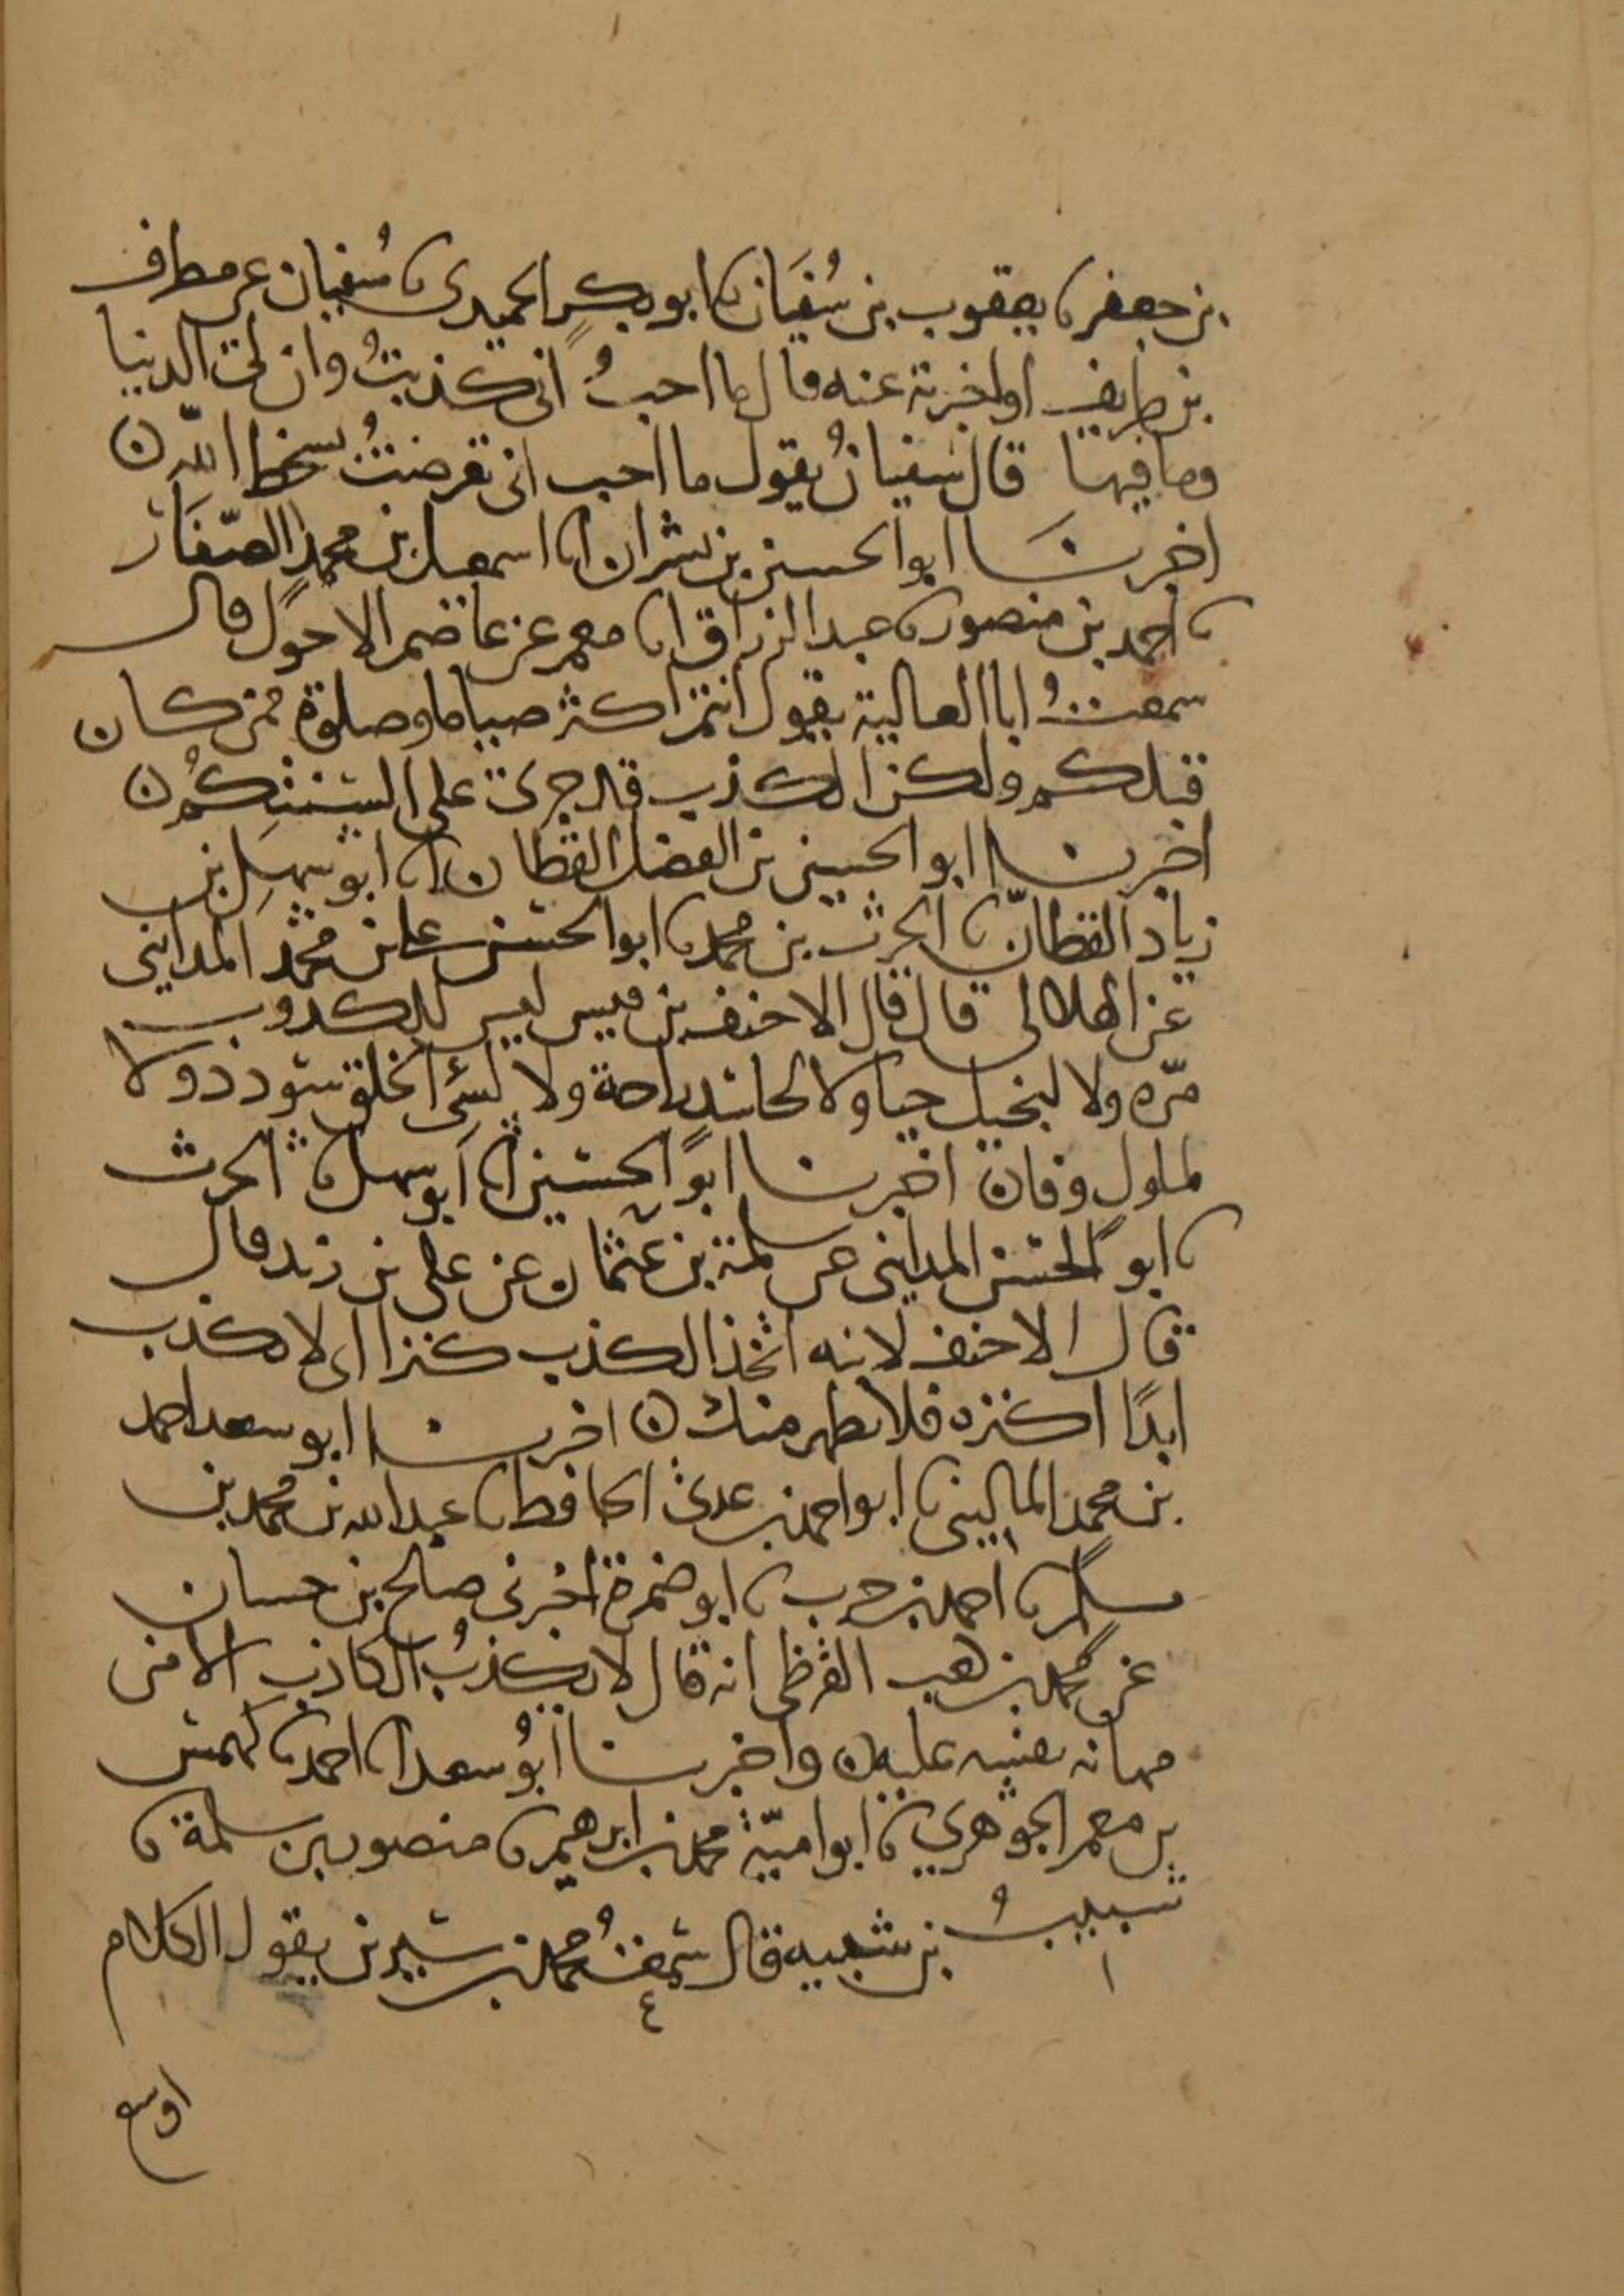 بن جعفر نا يعقوب بن سُفيَان نا ابو بكرٍ الحميدى نا سُفيان عن مطرف
بن طريف او اخبرته عنه قال ما احبُ انى كذبتُ وان لى الدنيا
وما فيها قال سفيانُ يقول ما احب انى تعرضتُ لسخط الله ن
اخبرنَا ابو الحسين بن بشران انا اسمعيل بن محمدٍ الصّفَار
نا احمد بن منصور نا عبد الرزاق انا معمر عن عاصم الاحول قال
سمعتُ ابا العالية يقول انتم اكثر صياما وصلوة ممن كان
قبلكم ولكن الكذب قد جرى على السنتكُم ن
اخبرنا ابو الحسين بن الفضل القطان انا ابو سهلِ بن
زياد القطانّ نا الحرث بن محمد نا ابو الحسن على بن محمد المداينى
عن الهلالى قال قال الاحنف بن قيس ليس للكذوب
مرّه ولا لبخيل حيا ولا لحاسد راحة ولا لسئ الخلق سودد ولا
لملول وفان اخبرنا ابو الحسين انا ابو سهل نا الحرث
نا ابو الحسن المداينى عن سلمة بن عثمان عن على بن زيد قال
قال الاحنف لابنه اتخذ الكذب كنزا اى لا تكذب
ابدًا اكنزه فلا يظهر منك ن اخبرنا ابو سعد احمد
بن محمد المالينى نا ابو احمد بن عدى الحافظ نا عبد الله بن محمد بن
مسلم نا احمد بن حرب نا ابو ضمرة اخبرنى صالح بن حسان
عن محمد بن كعب القرظى انه قال لا يكذبُ الكاذب الا من
مهانه نفسه عليه ن واخبرنا ابُو سعد انا احمد نا كهمش
بن معمر الجوهرى نا ابو اميّة محمد بن ابرهيم نا منصور بن سلمة نا
شبيبُ بن شيبه قال سمعتُ محمد بن سيرين يقول الكلام
اوسع